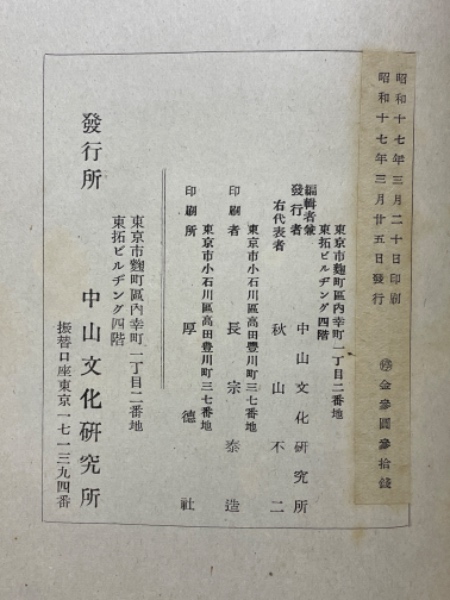 昭和十七年三月二十日印刷
昭和十七年三月廿五日發行
㊞金參圓參拾錢
東京市麴町區內幸町一丁目二番地
東拓ビルヂング四階
編輯者兼
發行者 中山文化硏究所
右代表者 秋山不二
東京市小石川區高田豊川町三七番地
印刷者 長宗泰造
東京市小石川區高田豊川町三七番地
印刷所 厚德社
東京市麴町區內幸町一丁目二番地
東拓ビルヂング四階
發行所 中山文化硏究所
振替口座東京一七一三九四番